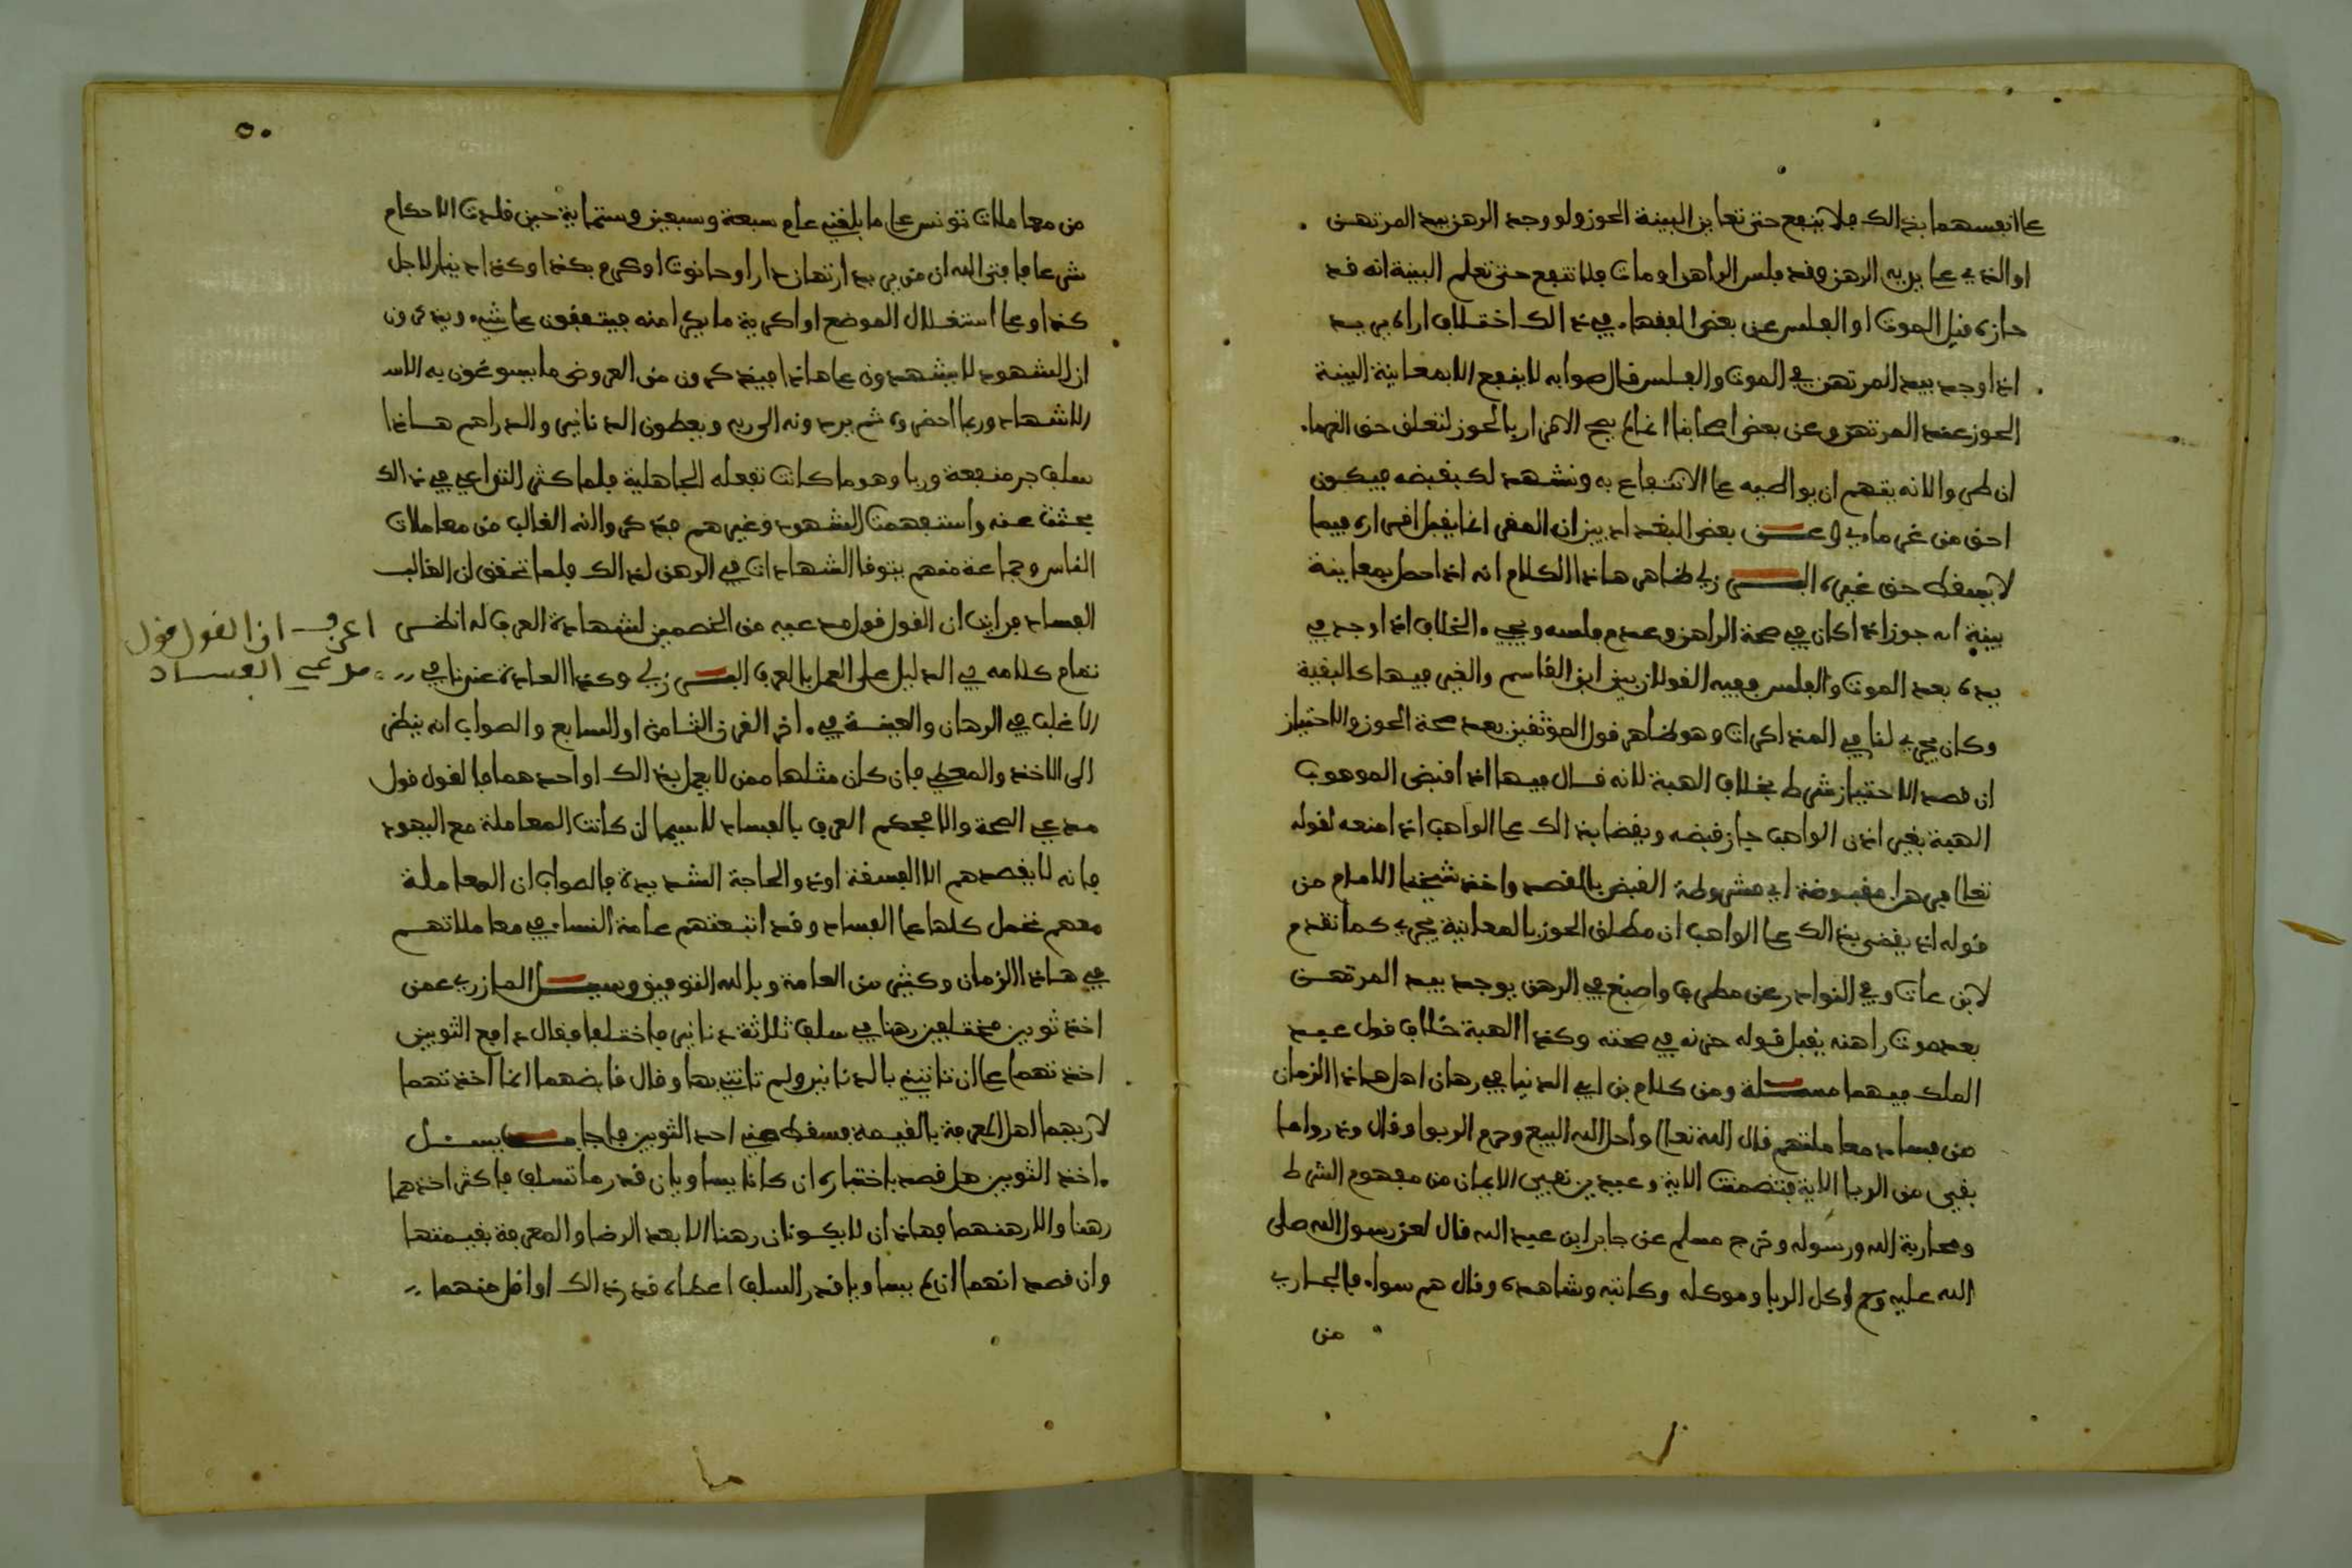 على انفسهما بذالك فلا ينفع حتى تعاين البينة الحوز ولو وجد الرهن بيد المرتهن
او الذي على يديه الرهن وقد فلس الراهن او مات فلا تنفع حتى تعلم البينة انه قد
حازه قبل الموت او الفلس وعن بعض الفقهاء في ذالك اختلاف اراه يريد
اذا وجد بيد المرتهن في الموت والفلس قال صوابه لا ينفع الا بمعاينة البينة
الحوز عند المرتهن وعن بعض اصحابنا انما لم يصح الاقرار بالحوز لتعلق حق الغرماء
ان طرو والانه يتهم ان يواطيه على الانتفاع به ونشهد لك بقبضه فيكون
احق من غرمايه وعـن بعض البغدادييز ان المقر انما يقبل اقراره فيما
لا يسقط حق غيره البــرزلي ظاهر هاذا الكلام انه اذا حصل بمعاينة
بينة انه جوز اذا كان في صحة الراهن وعدم فلسه ويجيء الخلاف اذا وجد في
يده بعد الموت والفلس ففيه القولان بين ابن القاسم والغير فيها كالبقية
وكان يجري لنا في المذاكرات وهو ظاهر قول الموثقين بعد صحة الحوز والاحتياز
ان قصد الاحتياز شرط بخلاف الهبة لانه قــال فيها اذا قبض الموهوب
الهبة بغير اذن الواهب جاز قبضه ويقضا بذالك على الواهب اذا منعه لقوله
تعلى فرهان مقبوضة اي مشروطة القبض بالقصد واخذ شيخنا الامام من
قوله اذ يقضى بذالك على الواهب ان مطلق الحوز بالمعاينة يجزي كما تقدم
لابن عات وفي النوادر عن مطرف واصبغ في الرهن يوجد بيد المرتهــن
بعد موت راهنه يقبل قوله حزته في صحته وكذا الهبة خلاف قول عبد
الملك فيهما مســئلة ومن كلام بن ابي الدنيا في رهان اهل هاذا الزمان
من فساد معاملتهم قال الله تعلى واحل الله البيع وحرم الربوا وقال وذروا ما
بقي من الربا الاية فتضمنت الاية وعيدين نفيي الايمان من مفهوم الشرط
ومحاربة الله ورسوله وخرج مسلم عن جابر ابن عبد الله قال لعن رسول الله صلى
الله عليه وسلم اكل الربا وموكله وكاتبه وشاهده وقال هم سواء فالجاري
من
٥٠
من معاملات تونس على ما بلغني عام سبعة وسبعين وستماية حين قلدت الاحكام
شرعا فافتى الله ان من يريد ارتهان دار او حانوت او كرم بكذا وكذا دينارا لاجل
كذا وعلى استغلال الموضع او اكرية ما يكرا منه فيتفقون على شيء ويذكرون
ان الشهود لا يشهدون على هاذا فيذكرون من العروض ما يسوغون به الاسـ
الاشهاد وربما احضروه ثم يردونه الى ربه ويعطون الدنانير والدراهم هــاذا
سلف جر منفعة وربا وهو ما كانت تفعله الجاهلية فلما كثر التداعي في ذالك
بحثت عنه واستفهمت الشهود وغيرهم فذكروا انه الغالب من معاملات
الناس وجماعة منهم يتوقا الشهادات في الرهن لذالك فلما تحقق ان الغالب
الفساد فرايت ان القول قول مدعيه من الخصمين لشهادة العرف له انظــر
تمام كلامه في الدليل على العمل بالعرف البــرزلي وكذا العادة عندنا في
الاغلب في الرهان والعينــة في اخر القرن الثامن او السابع والصواب انه ينظر
الى الاخذ والمعطي فان كان مثلها ممن لا يعمل بذالك او احدهما فالقول قول
مدعي الصحة والا فيحكم العرف بالفساد لا سيما ان كانت المعاملة مع اليهود
فانه لا يقصدهم الا الفسقة او ذو الحاجة الشديدة فالصواب ان المعاملة
معهم تحمل كلها على الفساد وقد اتبعتهم عامة النساء في معاملاتهــم
في هــاذا الزمان وكثير من العامة وبالله التوفيق وســئــل المازري عمن
اخذ ثوبين مختلفين رهنا في سلف ثلاثة دنانير فاختلفا فقال دافع الثوبين
اخذتهما على ان تاتيني بالدنانير ولم تاتني بها وقال قابضهما انما اخذتهما
لاريهما اهل المعرفة بالقيمة فسقط مني احد الثوبين فاجاب يســئــل
اخذ الثوبين هل قصد باختياره ان كانا يساويان قدر ما تسلف فاكثر اخذهما
رهنا والا رهنهما فهاذان لا يكونان رهنا الا بعد الرضا والمعرفة بقيمتها
وان قصد انهما ان لم يساويا قدر السلف اعطاه قدر ذالك او اقل منهما
اعرف ان القول قول
مدعي الفســاد